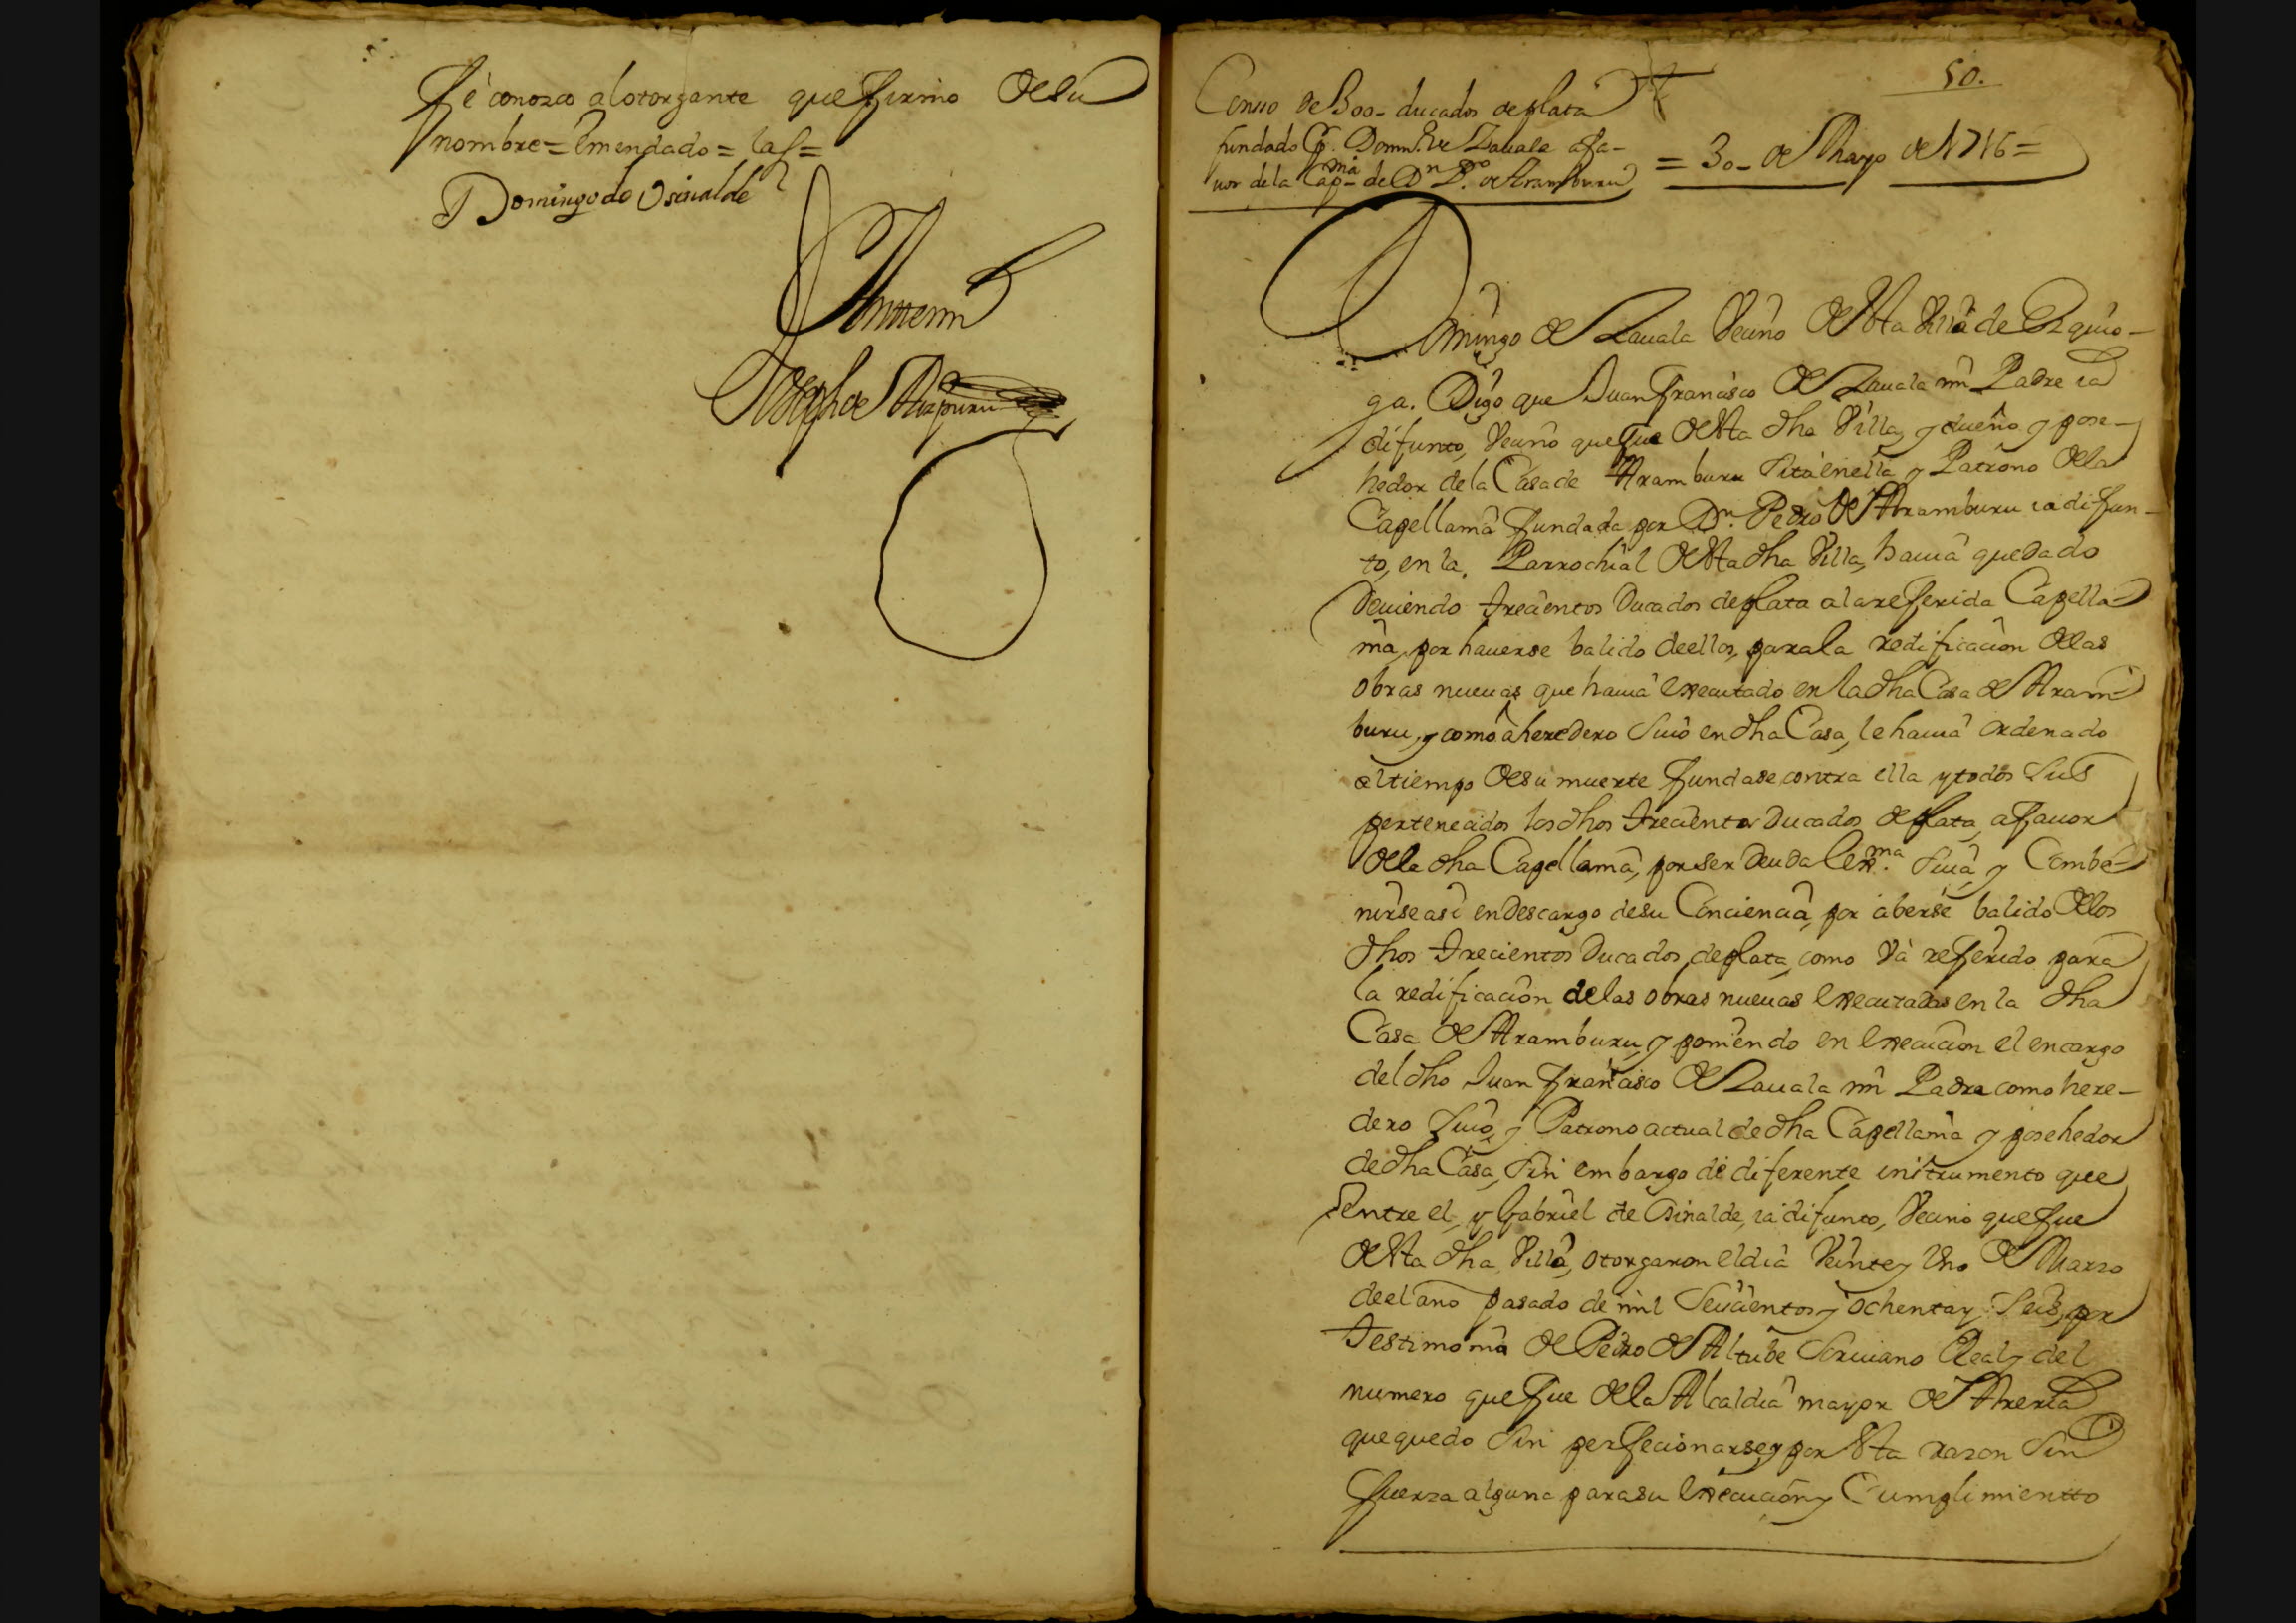 fè conozco al otorgante que firmo de su
nombre = emendado = las =
Domingo de Osinalde
Antemi
Joseph de Aizpuru
50.
Censo de 300- ducados de plata
fundado Pr. Domingo de Zauala a fa-
uor de la Capnia de Dn Po. de Aramburu
= 30- de Mayo de 1716 =
Domingo de Zauala Vecino de esta Villa de Ezquio-
ga. Digo que Juan francisco de Zauala mi Padre ia
difunto, Vecino que fue de esta dha Villa, y dueño y pose-
hedor de la Casa de Aramburu Sita en ella y Patrono de la
Capellania fundada por Dn. Pedro de Aramburu ia difun-
to, en la Parrochial de esta dha Villa, hauia quedado
deuiendo trecientos Ducados de plata a la referida Capella-
nia, por hauerse balido de ellos, para la redificacion de las
obras nueuas que hauia executado en la dha Casa de Aram-
buru, y como a heredero Suio en dha Casa, le hauia ordenado
al tiempo de su muerte fundase contra ella y todos Sus
pertenecidos los dhos trecientos Ducados de plata, a fauor
de la dha Capellania, por ser deuda lexma. Suia y Combe-
nirse asi en Descargo de su Conciencia, por aberse balido de los
dhos trecientos Ducados de plata, como Va referido para
la redificacion de las obras nueuas executadas en la dha
Casa de Aramburu, y poniendo en execucion el encargo
del dho Juan francisco de Zauala mi Padre como here-
dero Suio, y Patrono actual de dha Capellania y posehedor
de dha Casa, Sin embargo de diferente instrumento que
entre el, y Gabriel de Osinalde, ia difunto, Vecino que fue
de esta dha Villa, otorgaron el dia Veinte y Uno de Marzo
de el año pasado de mil Seiscientos y ochenta y Seis, por
testimonia de Pedro de Altube Scriuano Real y del
numero que fue de la Alcaldia mayor de Areria
que quedo Sin perfecionarse, y por esta razon Sin
fuerza alguna para su execucion y Cumplimientto